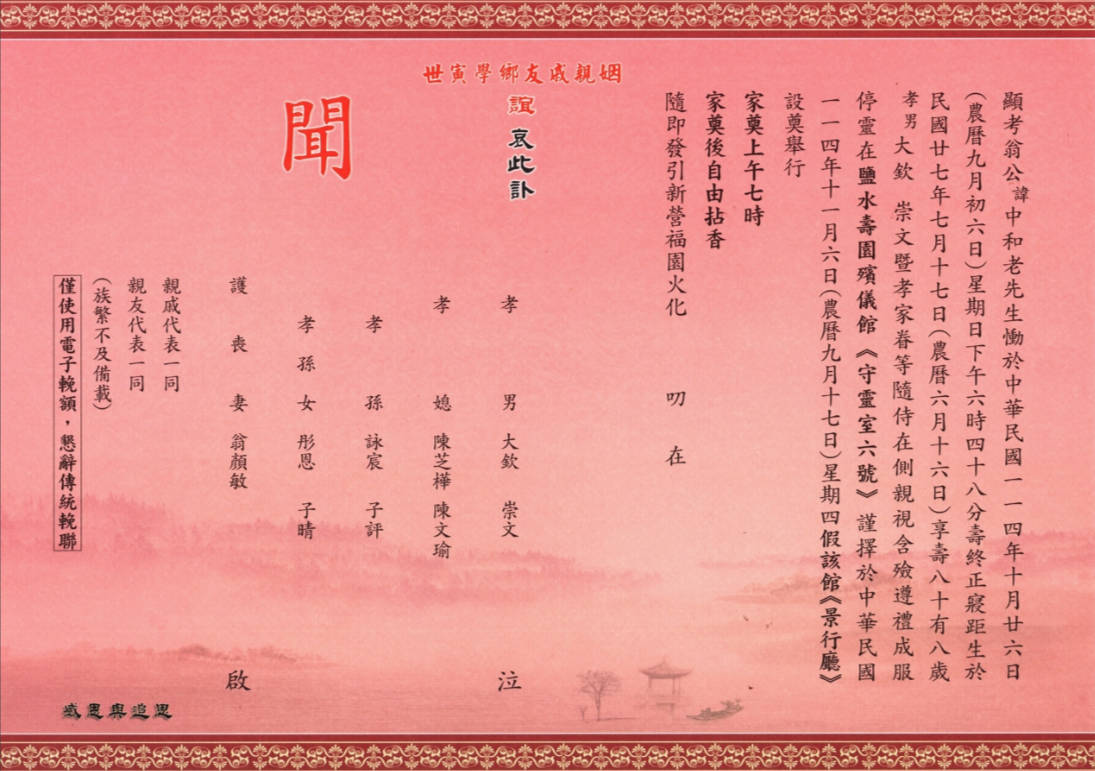 顯考翁公諱中和老先生慟於中華民國一一四年十月廿六日
（農曆九月初六日）星期日下午六時四十八分壽終正寢距生於
民國廿七年七月十七日（農曆六月十六日）享壽八十有八歲
孝男大欽 崇文暨孝家眷等隨侍在側親視含殮遵禮成服
停靈在鹽水壽園殯儀館《守靈室六號》謹擇於中華民國
一一四年十一月六日（農曆九月十七日）星期四假該館《景行廳》
設奠舉行
家奠上午七時
家奠後自由拈香
隨即發引新營福園火化 叨在
姻親戚友鄉學寅世
誼 哀此訃
聞
孝 男 大欽 崇文 泣
孝 媳 陳芝樺 陳文瑜
孝 孫 詠宸 子評
孝孫女 彤恩 子晴
護喪妻 翁顏敏 啟
親戚代表一同
親友代表一同
（族繁不及備載）
僅使用電子輓額，懇辭傳統輓聯
感恩與追思